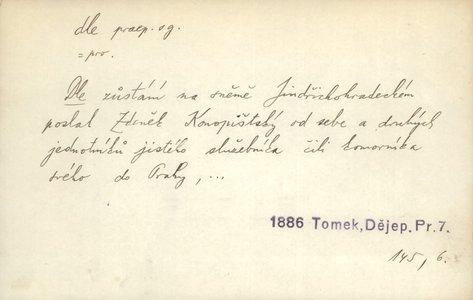 dle praep. s g.
= pro.
Dle zůstání na sněmě Jindřichohradeckém
poslal Zdeněk Konopišťský od sebe a druhých
jednotníků jistého služebníka čili komorníka
svého do Prahy, ...
1886 Tomek, Dějep. Pr. 7.
145, 6.